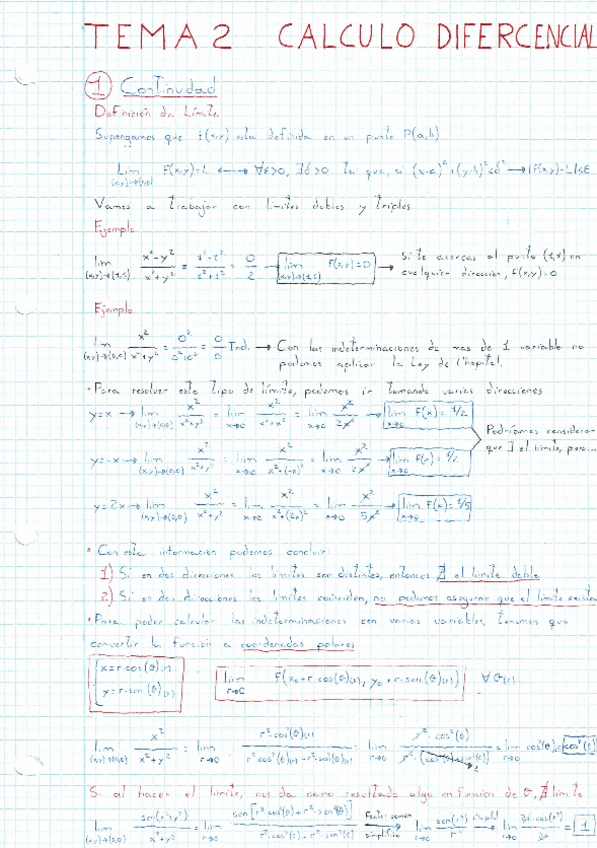 TEMA 2 CALCULO DIFERCENCIAL
1 Continuidad
Definición de Límite
Supongamos que f(x,y) esta definida en un punto P(a,b)
Lim (x,y)→(a,b) F(x,y)=L ⟷ ∀ε>0, ∃δ>0 ta que, si (x-a)²+(y-b)²<δ² → |f(x,y)-L|<ε
Vamos a trabajar con límites dobles y triples
Ejemplo
lim x²-y² / x²+y² = = 0/2 → lim F(x,y)=0 → Si te acercas al punto en
cualquier dirección, F(x,y)=0
Ejemplo
lim (x,y)→(0,0) x²/x²+y² = 0²/0²+0² = 0/0 Ind. → Con las indeterminaciones de mas de 1 variable no
podemos aplicar la Ley de L'hopital.
• Para resolver este tipo de límite, podemos ir tomando varias direcciones
y=x → lim (x,y)→(0,0) x²/x²+y² = lim x→0 x²/x²+x² = lim x→0 x²/2x² → lim x→0 F(x)=1/2
Podríamos considerar
que ∃ el límite, pero...
y=-x → lim (x,y)→(0,0) x²/x²+y² = lim x→0 x²/x²+(-x)² = lim x→0 x²/2x² → lim x→0 F(x)=1/2
y=2x → lim (x,y)→(0,0) x²/x²+y² = lim x→0 x²/x²+(2x)² = lim x→0 x²/5x² → lim x→0 F(x)=1/5
• Con esta información podemos concluir:
1) Si en dos direcciones los límites son distintos, entonces ∄ el límite doble
2) Si en dos direcciones los límites coinciden, no podemos asegurar que el límite exista
• Para poder calcular las indeterminaciones con varias variables, tenemos que
convertir la función a coordenadas polares
x=r·cos(θ)
y=r·sen(θ)
lim r→0 F(x₀+r·cos(θ), y₀+r·sen(θ)) ∀θ
lim (x,y)→(0,0) x²/x²+y² = lim r→0 r²·cos²(θ) / r²·cos²(θ)+r²·sen²(θ) = lim r→0 r²·cos²(θ) / r²·(cos²(θ)+sen²(θ)) = lim r→0 cos²(θ) = cos²(θ)
Si al hacer el límite, nos da como resultado algo en función de θ, ∄ límite
lim (x,y)→(0,0) sen(x²+y²)/x²+y² = lim r→0 sen[r²·cos²(θ)+r²·sen²(θ)] / r²·cos²(θ)+r²·sen²(θ) Factor común simplifica → lim r→0 sen(r²)/r² → lim r→0 = 1